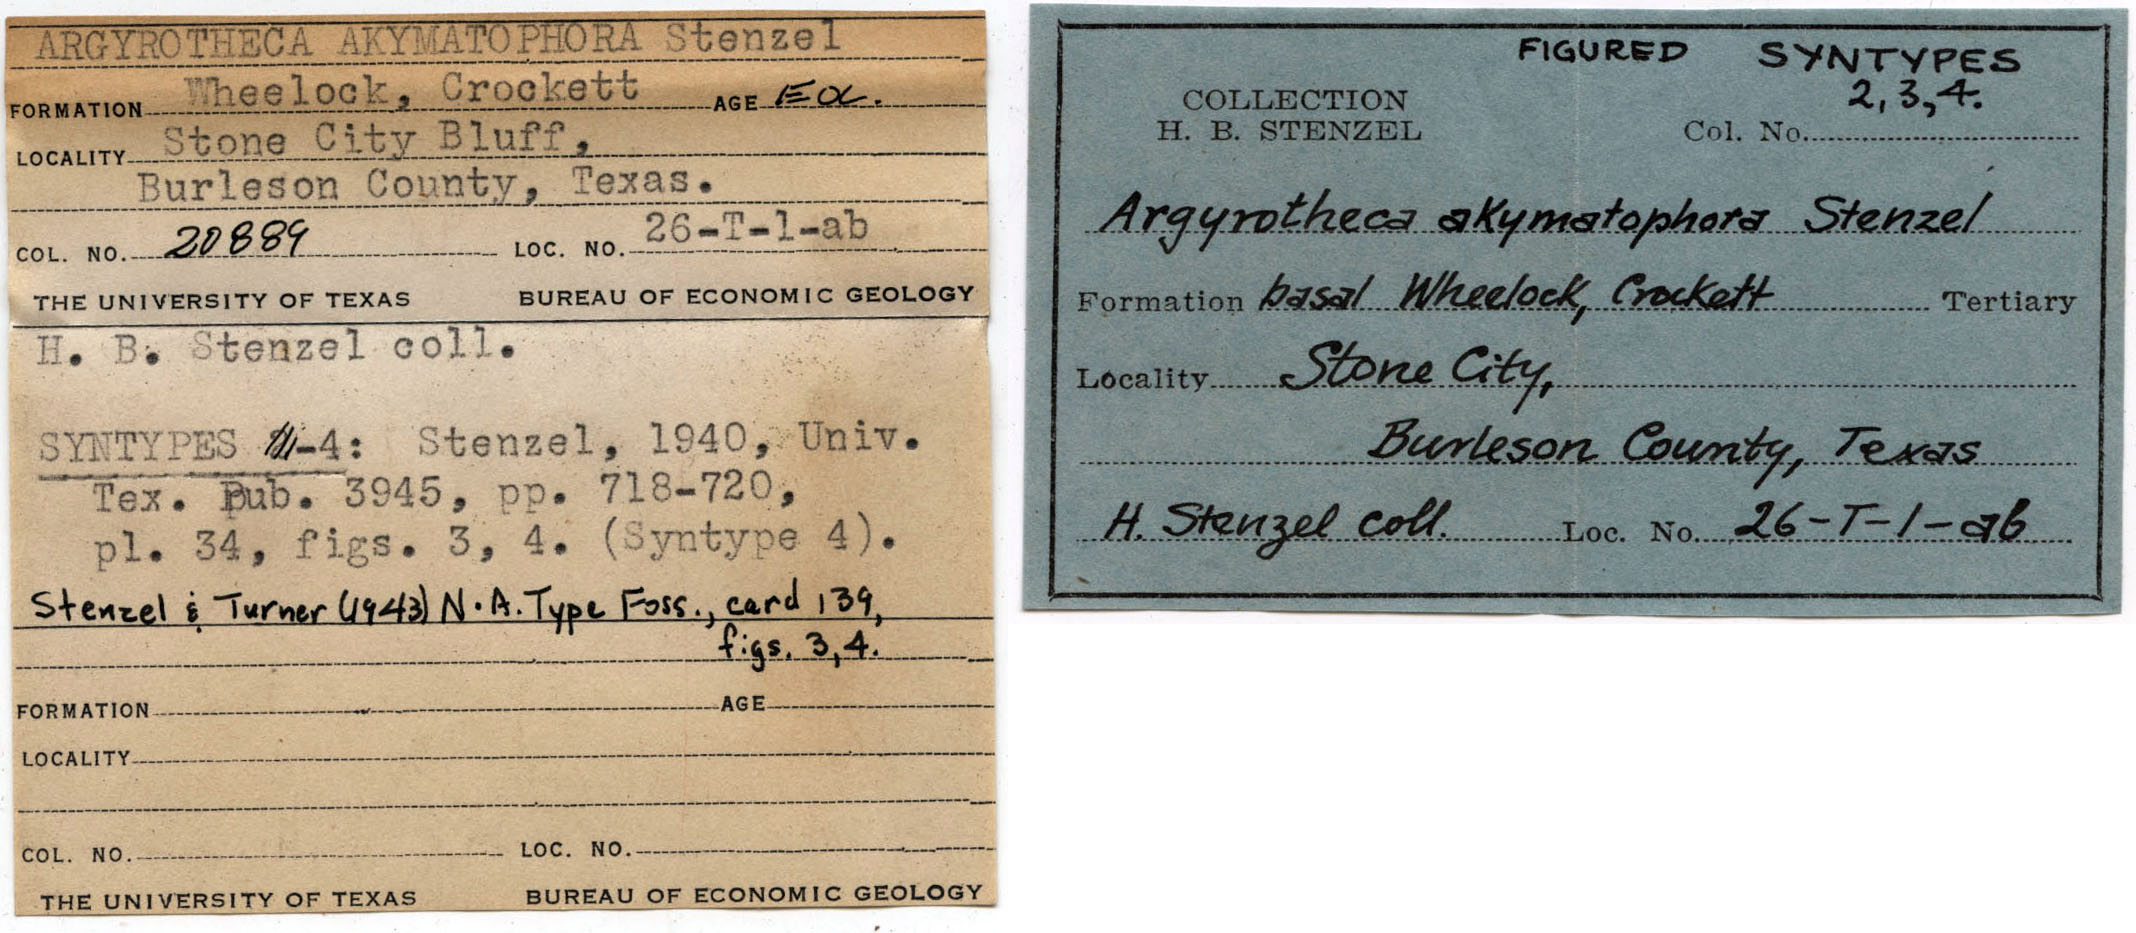 ARGYROTHECA AKYMATOPHORA Stenzel
FORMATION Wheelock, Crockett AGE
LOCALITY Stone City Bluff,
Burleson County, Texas.
COL. NO. 20889 LOC. NO. 26-T-1-ab
THE UNIVERSITY OF TEXAS BUREAU OF ECONOMIC GEOLOGY
H. B. Stenzel coll.
SYNTYPES -4: Stenzel, 1940, Univ.
Tex. Pub. 3945, pp. 718-720,
pl. 34, figs. 3, 4. (Syntype 4).
Stenzel & Turner (1943) N.A. Type Foss., card 139,
figs. 3,4.
FORMATION AGE
LOCALITY
COL. NO. LOC. NO.
THE UNIVERSITY OF TEXAS BUREAU OF ECONOMIC GEOLOGY
FIGURED SYNTYPES
2,3,4.
COLLECTION
H. B. STENZEL Col. No.
Argyrotheca akymatophora Stenzel
Formation basal Wheelock, Crockett Tertiary
Locality Stone City,
Burleson County, Texas
H. Stenzel coll. Loc. No. 26-T-1-ab